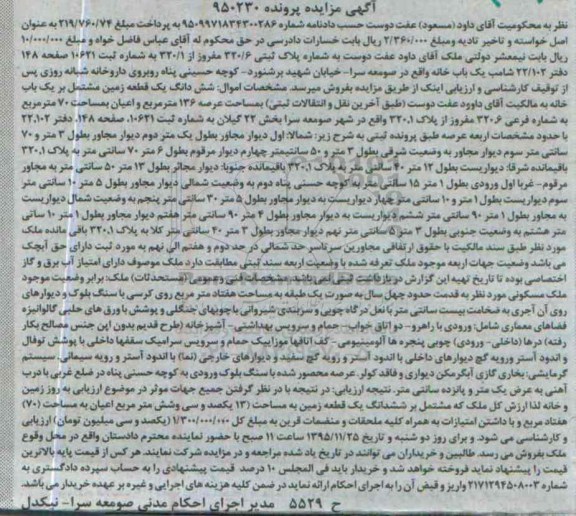 آگهی مزایده پرونده ۹۵۰۲۳۰
نظر به محکومیت آقای داود (مسعود) عفت دوست حسب دادنامه شماره ۹۵۰۹۹۷۱۸۳۴۳۰۰۲۸۶ به پرداخت مبلغ ۲۱۹/۷۶۰/۷۴ به عنوان
اصل خواسته و تاخیر تادیه ومبلغ ۲/۳۶۰/۰۰۰ ریال بابت خسارات دادرسی در حق محکوم له آقای عباس فاضل خواه و مبلغ ۱۰/۰۰۰/۰۰۰
ریال بابت نیمعشر دولتی ملک آقای داود عفت دوست به شماره پلاک ثبتی ۳۲۰/۶ مفروز از ۳۲۰/۱ به شماره ثبت ۱۰۶۲۱ صفحه ۱۴۸
دفتر ۲۲/۱۰۲ شامب یک باب خانه واقع در صومعه سرا- خیابان شهید برشنورد- کوچه حسینی پناه روبروی داروخانه شبانه روزی پس
از توقیف کارشناسی و ارزیابی اینک از طریق مزایده بفروش میرسد. مشخصات اموال: شش دانگ یک قطعه زمین مشتمل بر یک باب
خانه به مالکیت آقای داوود عفت دوست (طبق آخرین نقل و انتقالات ثبتی) بمساحت عرصه ۱۳۶ مترمربع و اعیان بمساحت ۷۰ مترمربع
به شماره فرعی ۳۲۰.۶ مفروز از پلاک ۳۲۰.۱ واقع در شهر صومعه سرا بخش ۲۲ گیلان به شماره ثبت ۱۰۶۲۱، صفحه ۱۴۸، دفتر ۲۲.۱۰۲
با حدود مشخصات اربعه عرصه طبق پرونده ثبتی به شرح زیر: شمالا: اول دیوار مجاور بطول یک متر دوم دیوار مجاور بطول ۳ متر و ۷۰
سانتی متر سوم دیوار مجاور به وضعیت شرقی بطول ۳ متر و ۵۰ سانتیمتر چهارم دیوار مرقوم بطول ۶ متر ۷۰ سانتی متر به پلاک ۳۲۰.۱
باقیمانده شرقا: دیواریست بطول ۱۲ متر ۲۰ سانتی متر به پلاک ۳۲۰.۱ باقیمانده جنوبا: دیوار مجاور بطول ۱۳ متر ۵۰ سانتی متر به مجاور
مرقوم- غربا اول ورودی بطول ۱ متر ۱۵ سانتی متر به کوچه حسنی پناه دوم به وضعیت شمالی دیوار مجاور بطول ۵ متر ۱۰ سانتی متر
سوم دیواریست بطول ۱ متر و ۱۰ سانتی متر چهار دیواریست به دیوار مجاور بطول ۵ متر ۳۰ سانتی متر پنجم به وضعیت شمال دیواریست
به مجاور بطول ۱ متر ۹۰ سانتی متر ششم دیواریست به دیوار مجاور بطول ۴ متر ۹۰ سانتی متر هفتم دیوار مجاور بطول ۱ متر ۱۰ سانتی
متر هشتم به وضعیت جنوبی بطول ۳ متر ۵ سانتی متر نهم دیوار مجاور بطول ۳ متر ۴۰ سانتی متر کلا به پلاک ۳۲۰.۱ باقی مانده ملک
مورد نظر طبق سند مالکیت با حقوق ارتفاقی مجاورین سرتاسر حد شمالی در حد دوم و هفتم الی نهم به مورد ثبت دارای حق آبچک
می باشد وضعیت جهات اربعه موجود ملک تعرفه شده با وضعیت اربعه سند ثبتی مطابقت دارد ملک موصوف دارای امتیاز آب برق و گاز
اختصاصی بوده تا تاریخ تهیه این گزارش در بازداشت ثبتی نمی باشد. مشخصات فنی و عمومی (مستحدثات) ملک: برابر وضعیت موجود
ملک مسکونی مورد نظر به قدمت حدود چهل سال به صورت یک طبقه به مساحت هفتاد متر مربع روی کرسی با سنگ بلوک و دیوارهای
روی آن آجری به ضخامت بیست سانتی متر با نعل درگاه چوبی و سربندی شیروانی با چوبهای جنگلی و پوشش با ورق های حلبی گالوانیزه
فضاهای معماری شامل: ورودی با راهرو- دو اتاق خواب- حمام و سرویس بهداشتی- آشپزخانه (طرح قدیم بدون اپن جنس مصالح بکار
رفته) درها (داخلی- ورودی) چوبی پنجره ها آلومینیومی- کف اتاقها موزاییک حمام و سرویس سرامیک سقفها داخلی با پوشش توفال
و اندود آستر ورویه گچ دیوارهای داخلی با اندود آستر و رویه گچ سفید و دیوارهای خارجی (نما) با اندود آستر و رویه سیمانی. سیستم
گرمایشی: بخاری گازی آبگرمکن دیواری و فاقد کولر. عرصه محصور شده با سنگ بلوک ورودی به کوچه حسنی پناه در ضلع غربی با درب
آهنی به عرض یک متر و پانزده سانتی متر. نتیجه ارزیابی: در نتیجه با در نظر گرفتن جمیع جهات موثر در موضوع ارزیابی به روز زمین
و خانه لذا ارزش کل ملک که مشتمل بر ششدانگ یک قطعه زمین به مساحت (۱۳ یکصد و سی وشش متر مربع اعیان به مساحت (۷۰)
هفتاد مربع و با داشتن امتیازات به همراه کلیه ملحقات و منضمات قرین به مبلغ کل ۱/۳۰۰/۰۰۰/۰۰۰ (یکصد و سی میلیون تومان) ارزیابی
و کارشناسی می شود. و برای روز دو شنبه و تاریخ ۱۳۹۵/۱۱/۲۵ ساعت ۱۱ صبح با حضور نماینده محترم دادستان واقع در محل وقوع
ملک بفروش می رسد. طالبین و خریداران می توانند در تاریخ یاد شده مراجعه و در مزایده شرکت نمایند. هر کس از قیمت پایه بالاترین
قیمت را پیشنهاد نماید فروخته خواهد شد و خریدار باید فی المجلس ۱۰ درصد قیمت پیشنهادی را به حساب سپرده دادگستری به
شماره ۲۱۷۱۲۹۴۵۰۸۰۰۳ واریز و قبض آن را به اجرای احکام ارائه نماید در ضمن کلیه هزینه های اجرایی و غیره بر عهده خریدار می باشد.
ح ۵۵۲۹ مدیر اجرای احکام مدنی صومعه سرا- نیکدل